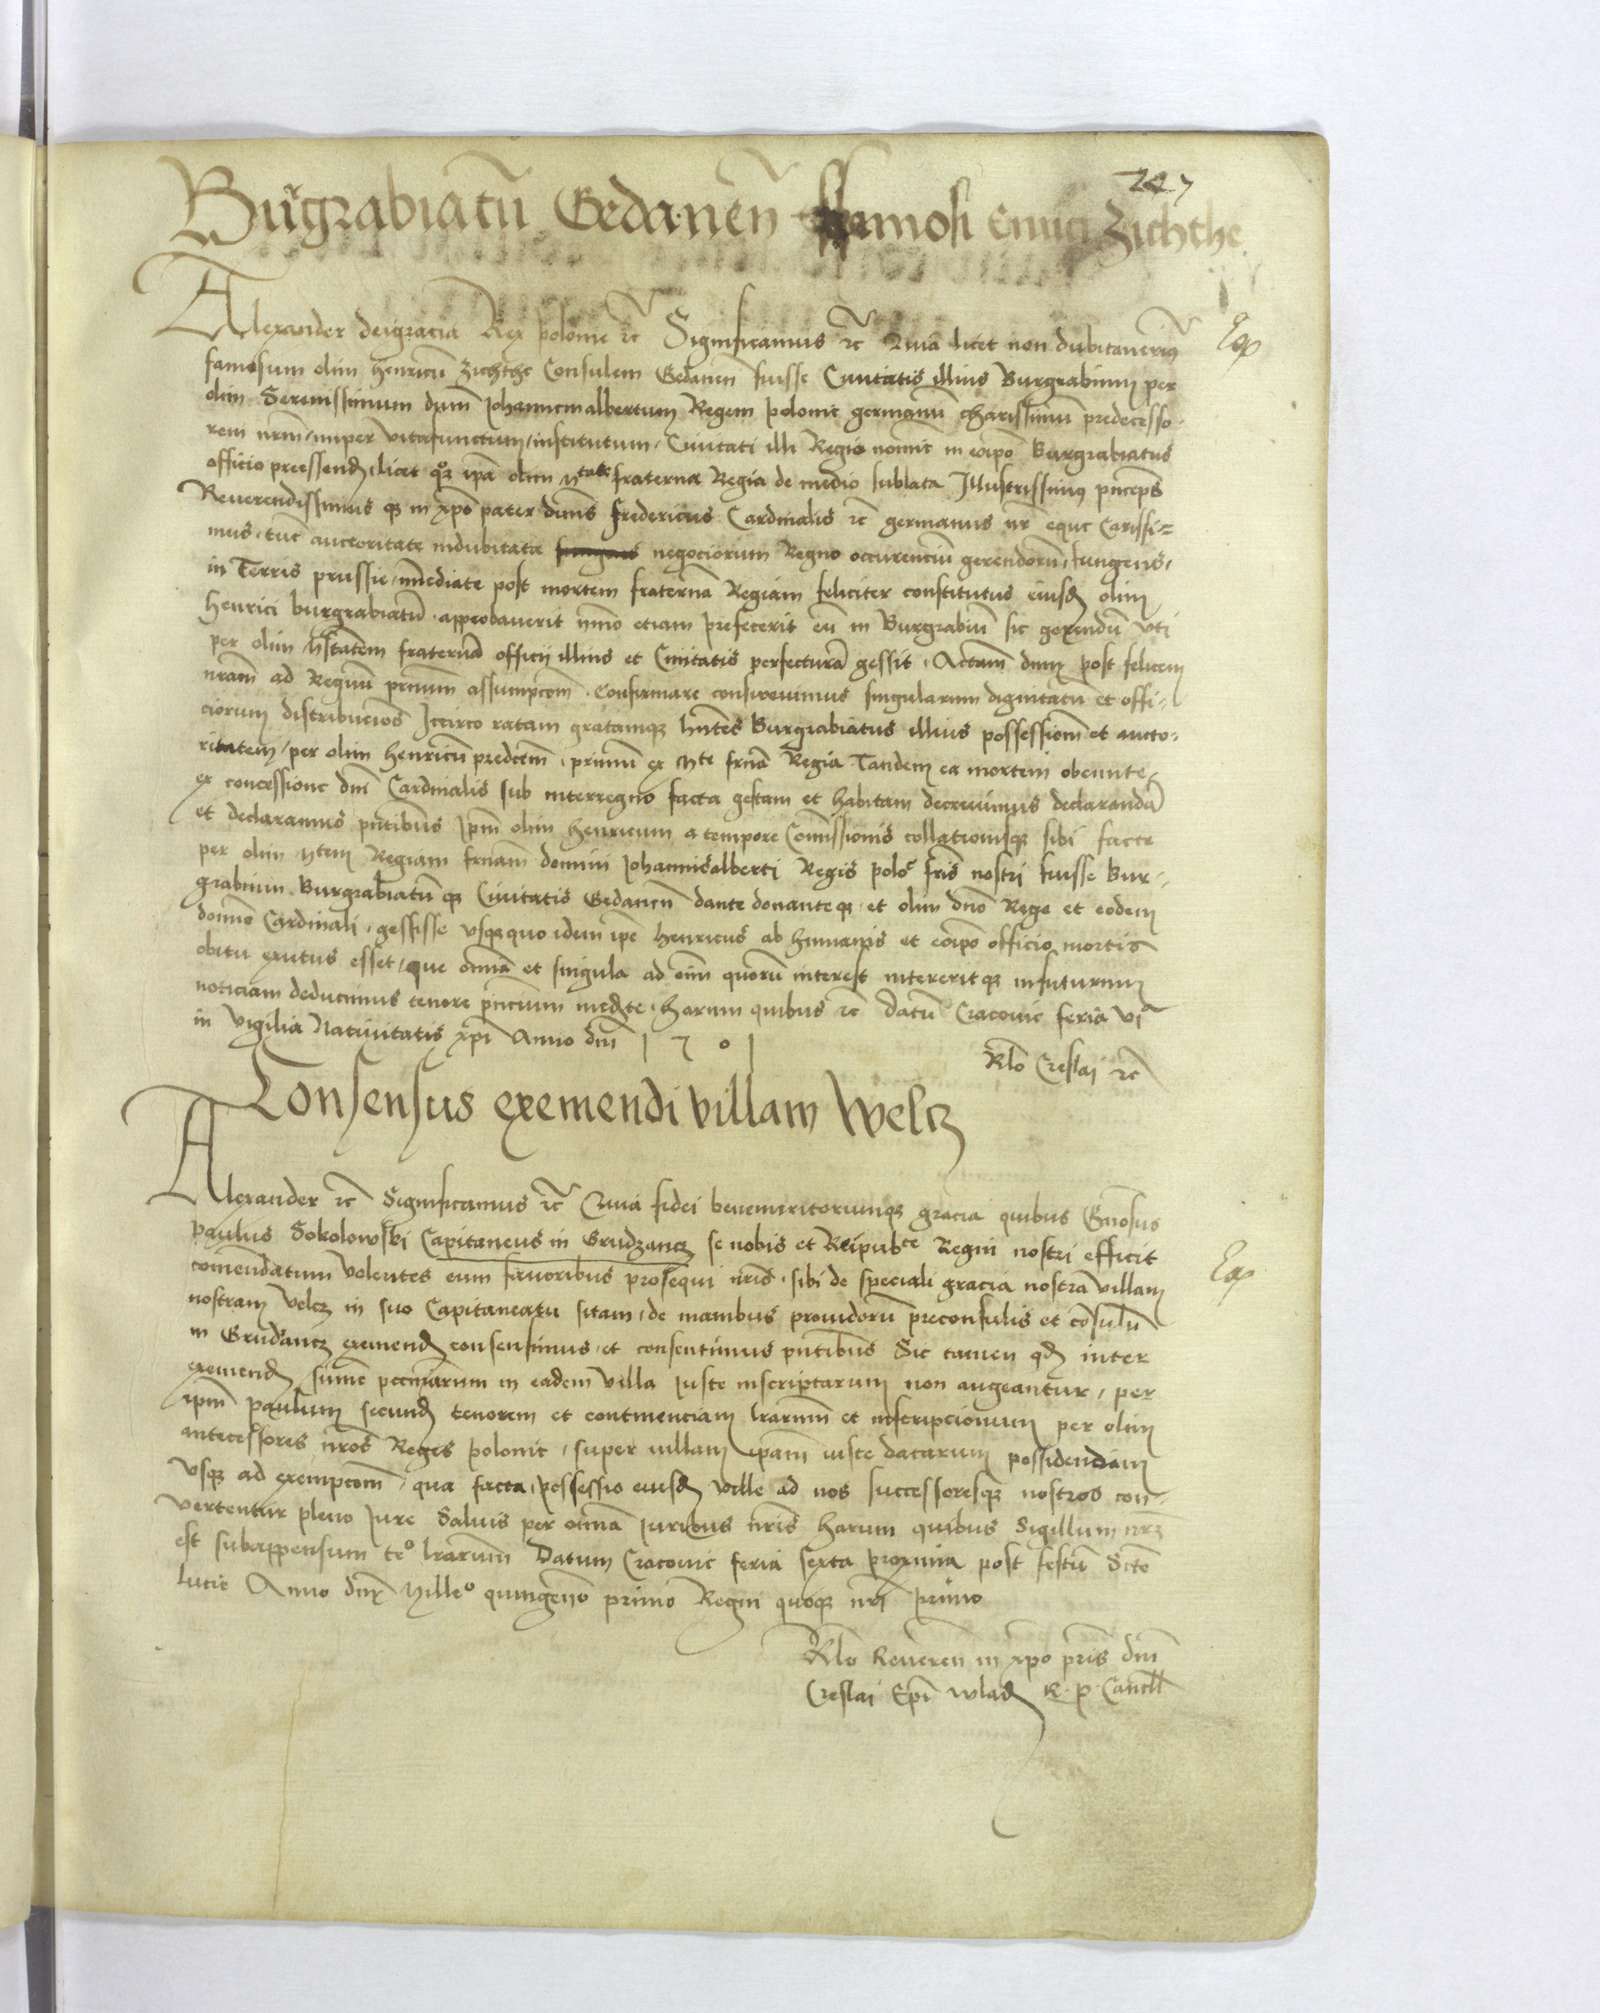 227
Burgrabiatū Gedaneñ famosi Enrici Zichthe
Alexander deigracia Rex polonie rc Significamus rc Quia licet non dubitaverim9
famosum olim henricū Zichthe Consulem Gedaneñ fuisse Civitatis illius Burgrabium per
olim Serenissimum dnm Johannemalbertum Regem polonie germanū charissimū predecesso-
rem nrm nuper vitafunctum institutum Civitati illi Regio nomine in eoipo Burgrabiatus
officio preessend licet quoq ipa olim Mtate fraterna Regia de medio sublata Illustrissimus princeps
Reverendissimus q in xpo pater dnus fredericus Cardinalis rc germanus nr eque carissi=
mus tunc auctoritate indubitata negociorum Regno occurenciū gerendorū fungens
in Terris prussie imediate post mortem fraternā Regiam feliciter constitutus eiusd olim
henrici burgrabiatū approbaverit immo etiam prefecerit eū in Burgrabiū sic gerendū uti
per olim Mtatem fraternā officii illius et Civitatis perfecturā gessit Actam dum post felicem
nram ad Regnū primum assumpcom Confirmare consuevimus singularum dignitatū et offi-
ciorum distribucios Iccirco ratam gratamq hntes Burgrabiatus illius possessiom et aucto-
ritatem per olim henricū predcem primū ex Mte frna Regia Tandem ea mortem obeunte
ex concessione dni Cardinalis sub interregno facta gestam et habitam decrevimus declarandā
et declaramus pntibus Ipm olim henricum a tempore Comissionis collationisq sibi facte
per olim Mtem Regiam frnam domini Johannisalberti Regis polo fris nostri fuisse Bur-
grabium Burgrabiatūq Civitatis Gedaneñ dante donanteq et olim dno Rege et eodem
domino Cardinali gessisse usqequo idem ipe henricus ab humanis et eoipo officio mortis
obitu exutus esset que omnia et singula ad eim quorū interest intereritq infuturum
noticiam deducimus tenore pncium medte harum quibus rc Datū Cracovie feria vi
in vigilia Nativitatis xpi Anno dni 1 5 0 1
Rlo Creslai rc
Consensus exemendi villam Welcz
Alexander rc Significamus rc Quia fidei benemeritorumq gracia quibus Gnosus
paulus Sokolowski Capitaneus in Grudzancz se nobis et Reipubce Regni nostri efficit
comendatum Volentes eum favoribus prosequi nris sibi de speciali gracia nostra villam
nostram Velcz in suo Capitaneatu sitam de manibus providorū preconsulis et cōsulū
in Grudancz exemend consensimus et consentimus pntibus Sic tamen qd inter
exemend sume pecuniarum in eadem villa iuste inscriptarum non augeantur per
ipm paulum secund tenorem et continenciam lrarum et inscripcionum per olim
antecessores nros Reges polonie super villam ipam iuste datarum possidendam
Usq ad exempcom qua facta possessio eiusd ville ad nos successoresq nostros con-
vertentur pleno Iure Salvis per omnia iuribus nris harum quibus Sigillum nrm
est subappensum tro lrarum Datum Cracovie feria sexta proxima post festū Scte
lucie Anno dni Milleo quingeno primo Regni quoq nri primo
Rlo Reveren in xpo pris dni
Creslai Epi wlad R p Cancll
Eap
Eap